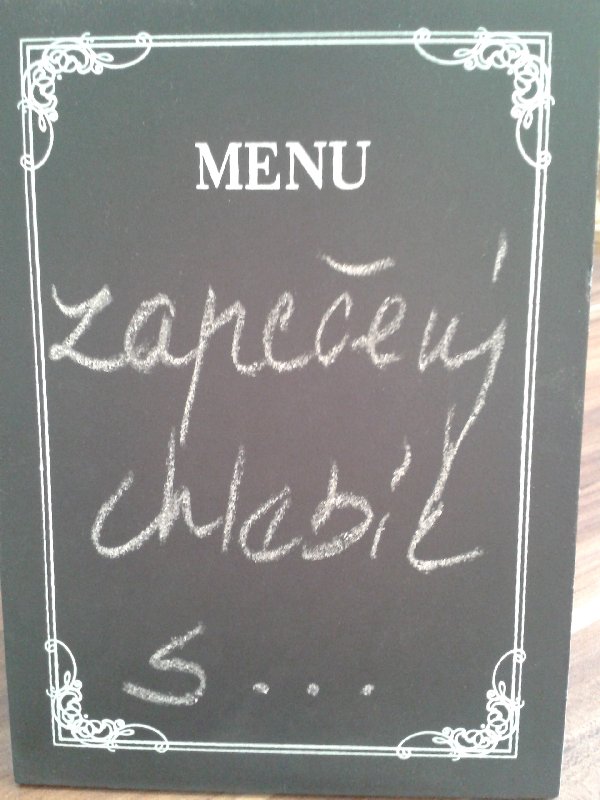 MENU
zapečený
chlebíč
s...